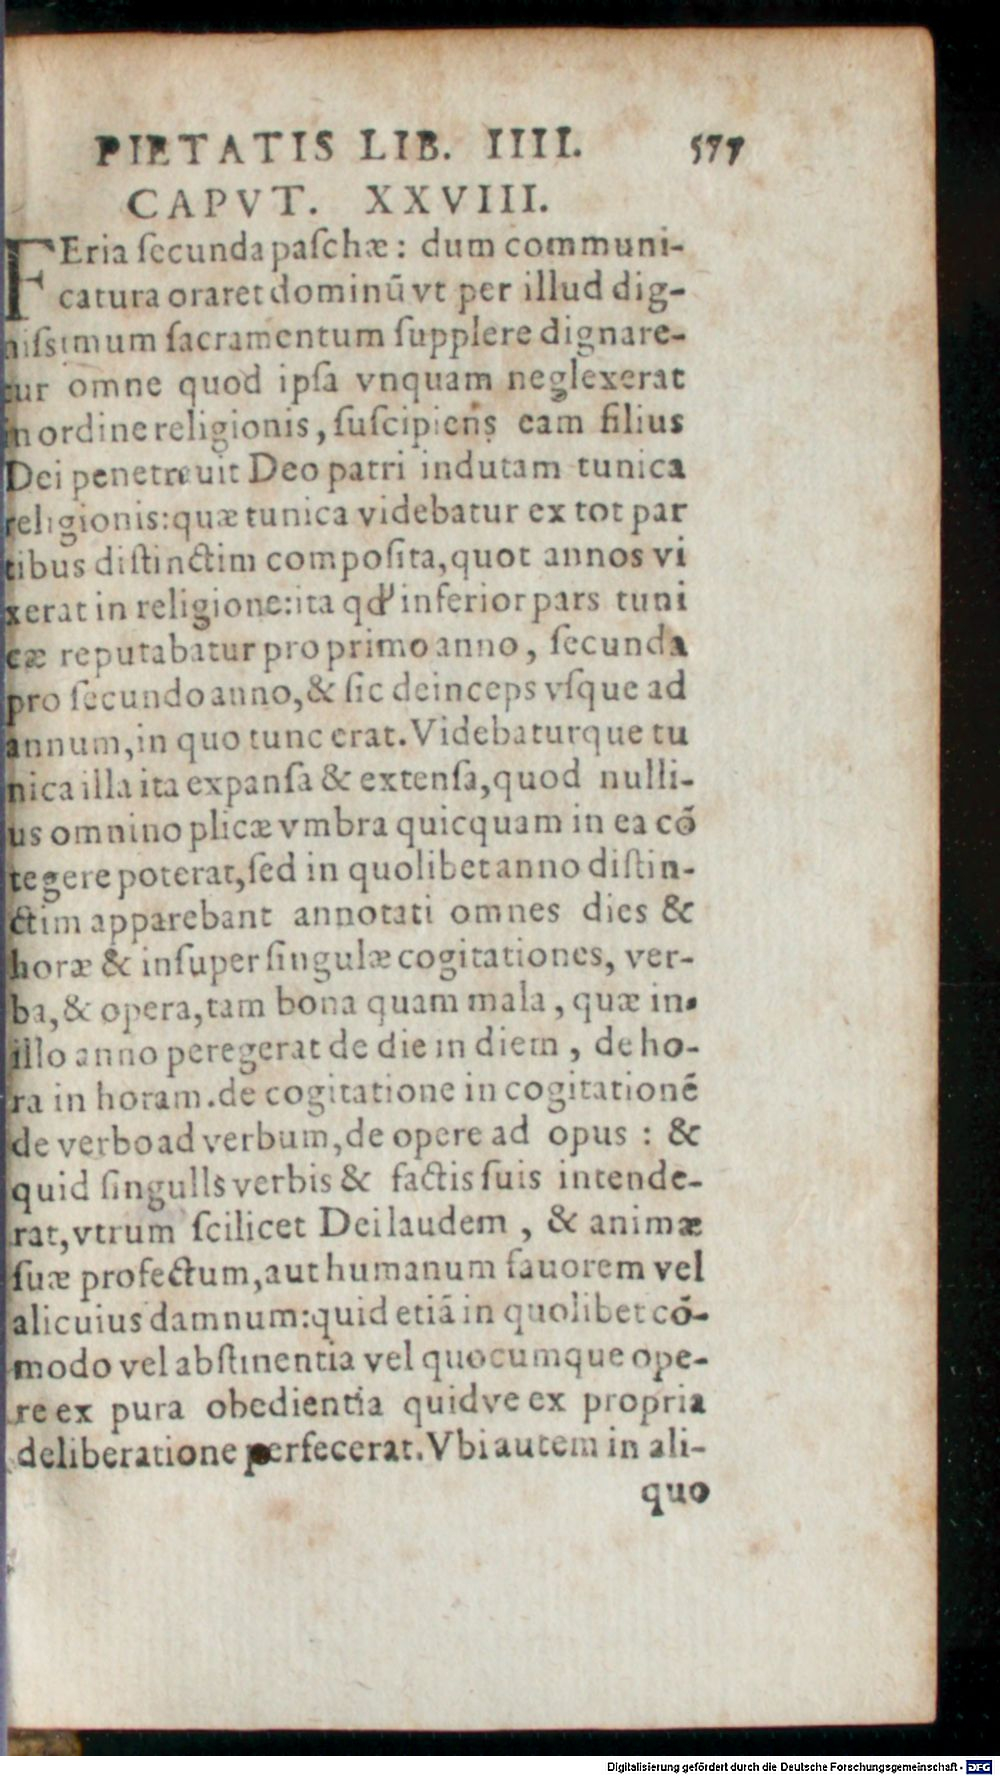 PIETATIS LIB. IIII. 577
CAPVT. XXVIII.
FEria ſecunda paſchæ: dum communi-
catura oraret dominū vt per illud dig-
niſsimum ſacramentum ſupplere dignare-
tur omne quod ipſa vnquam neglexerat
in ordine religionis, ſuſcipiens eam filius
Dei penetrauit Deo patri indutam tunica
religionis: quæ tunica videbatur ex tot par
tibus diſtinctim compoſita, quot annos vi
xerat in religione: ita qđ inferior pars tuni
cæ reputabatur pro primo anno, ſecunda
pro ſecundo anno, & ſic deinceps vſque ad
annum, in quo tunc erat. Videbaturque tu
nica illa ita expanſa & extenſa, quod nulli-
us omnino plicæ vmbra quicquam in ea cō
tegere poterat, ſed in quolibet anno diſtin-
ctim apparebant annotati omnes dies &
horæ & inſuper ſingulæ cogitationes, ver-
ba, & opera, tam bona quam mala, quæ in
illo anno peregerat de die in diem, de ho-
ra in horam. de cogitatione in cogitationē
de verbo ad verbum, de opere ad opus: &
quid ſingulls verbis & factis ſuis intende-
rat, vtrum ſcilicet Dei laudem, & animæ
ſuæ profectum, aut humanum fauorem vel
alicuius damnum: quid etiā in quolibet cō-
modo vel abſtinentia vel quocumque ope-
re ex pura obedientia quidve ex propria
deliberatione perfecerat. Vbi autem in ali-
quo
Digitalisierung gefördert durch die Deutsche Forschungsgemeinschaft - DFG